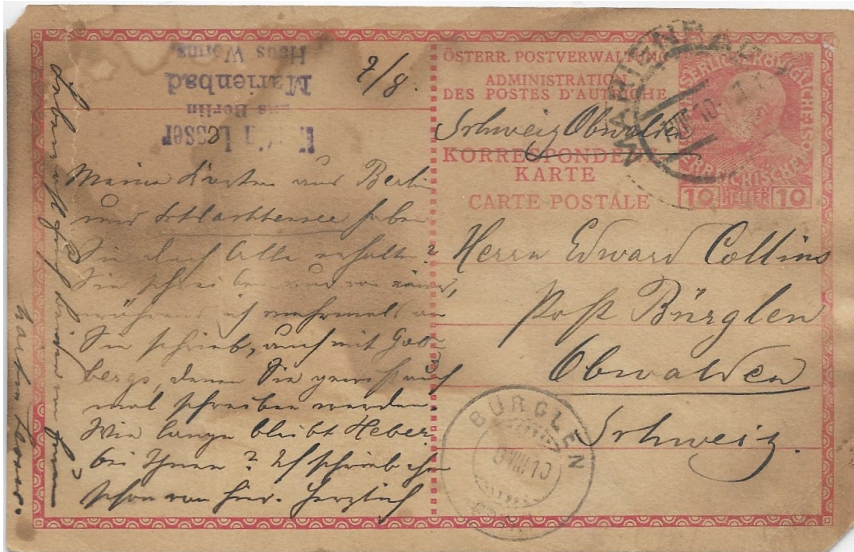 7/8.
ÖSTERR. POSTVERWALTUNG
ADMINISTRATION
DES POSTES D'AUTRICHE
Schweiz Obwalden
KORRESPONDENZ-
KARTE
CARTE POSTALE
10 HELLER 10
MARIENBAD
Herrn Edward Collins
Post Bürglen
Obwalden
Schweiz.
BÜRGLEN
Lesser
aus Berlin
Marienbad
Haus Worms
Meine Karten aus Berlin
und Schlachtensee haben
Sie doch Alle erhalten?
Sie schreiben nur von einer,
während ich mehrmals an
Sie schrieb, auch mit Gold-
bergs, denen Sie gewiss auch
mal schreiben werden.
Wie lange bleibt Heber
bei Ihnen? Ich schrieb ihm
schon von hier. Herzlich
Martin Lesser.